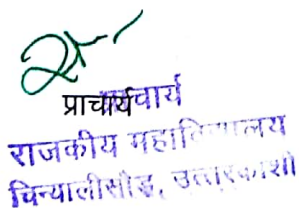 प्राचार्य
प्राचार्य
राजकीय महाविद्यालय
चिन्यालीसौड़, उत्तरकाशी